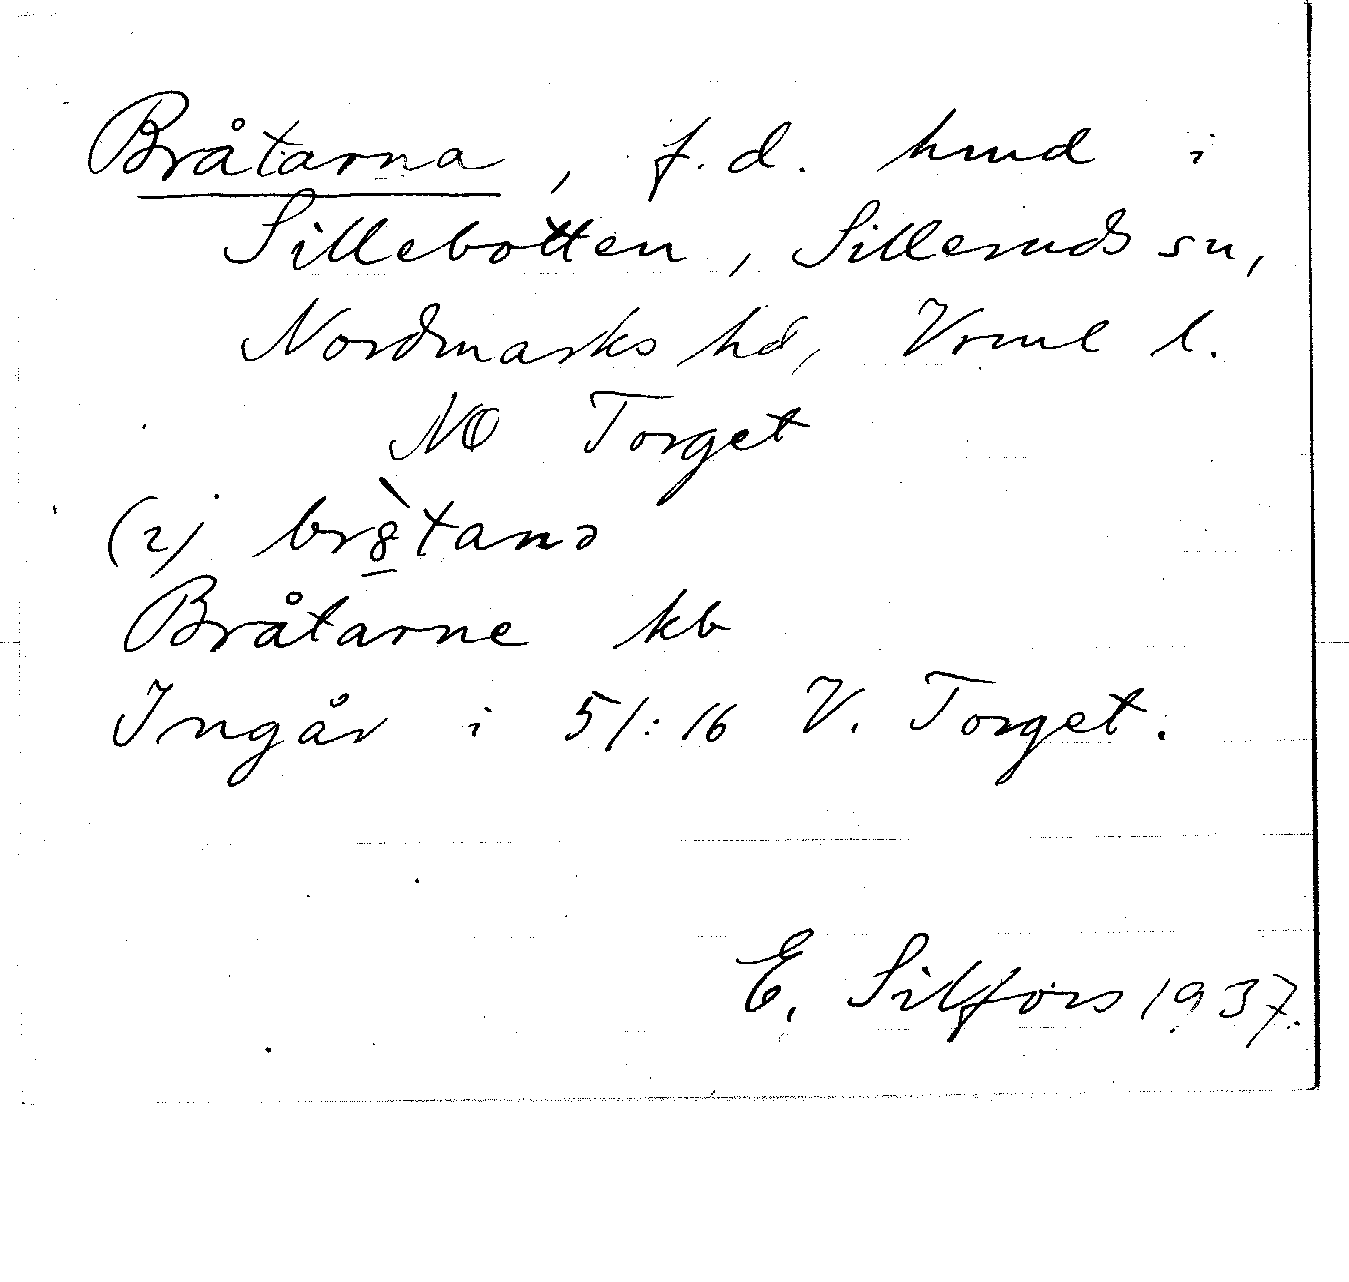 Bråtarna, f.d. hmd i
Sillebotten, Silleruds sn,
Nordmarks hd, Vrml l.
NO Torget
(2) br8̲̀tanə
Bråtarne kb
Ingår i 51:16 V. Torget.
E. Silfors 1937.